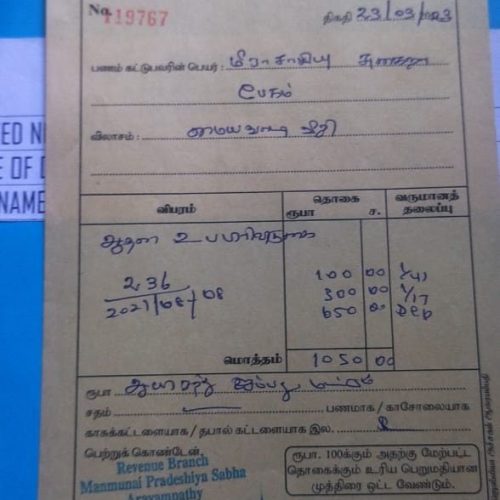 No. 119767
திகதி 23/03/2023
பணம் கட்டுபவரின் பெயர் : மீராசாகிபு
பேகம்
விலாசம் : மையவாடி வீதி
விபரம்
தொகை
ரூபா ச.
வருமானத் தலைப்பு
ஆதன உபபிரிவுகை
2,36
2021/08/08
100 00 1/41
300 00 1/17
650 00 Dep
மொத்தம் 1050 00
ரூபா ஆயிரத்து ஐம்பது மட்டும்
சதம்
பணமாக / காசோலையாக
காசுக்கட்டளையாக / தபால் கட்டளையாக இல.
பெற்றுக் கொண்டேன்.
Revenue Branch
Manmunai Pradeshiya Sabha
Arayampathy
ரூபா. 100க்கும் அதற்கு மேற்பட்ட
தொகைக்கும் உரிய பெறுமதியான
முத்திரை ஒட்ட வேண்டும்.
ED N
E OF D
NAME